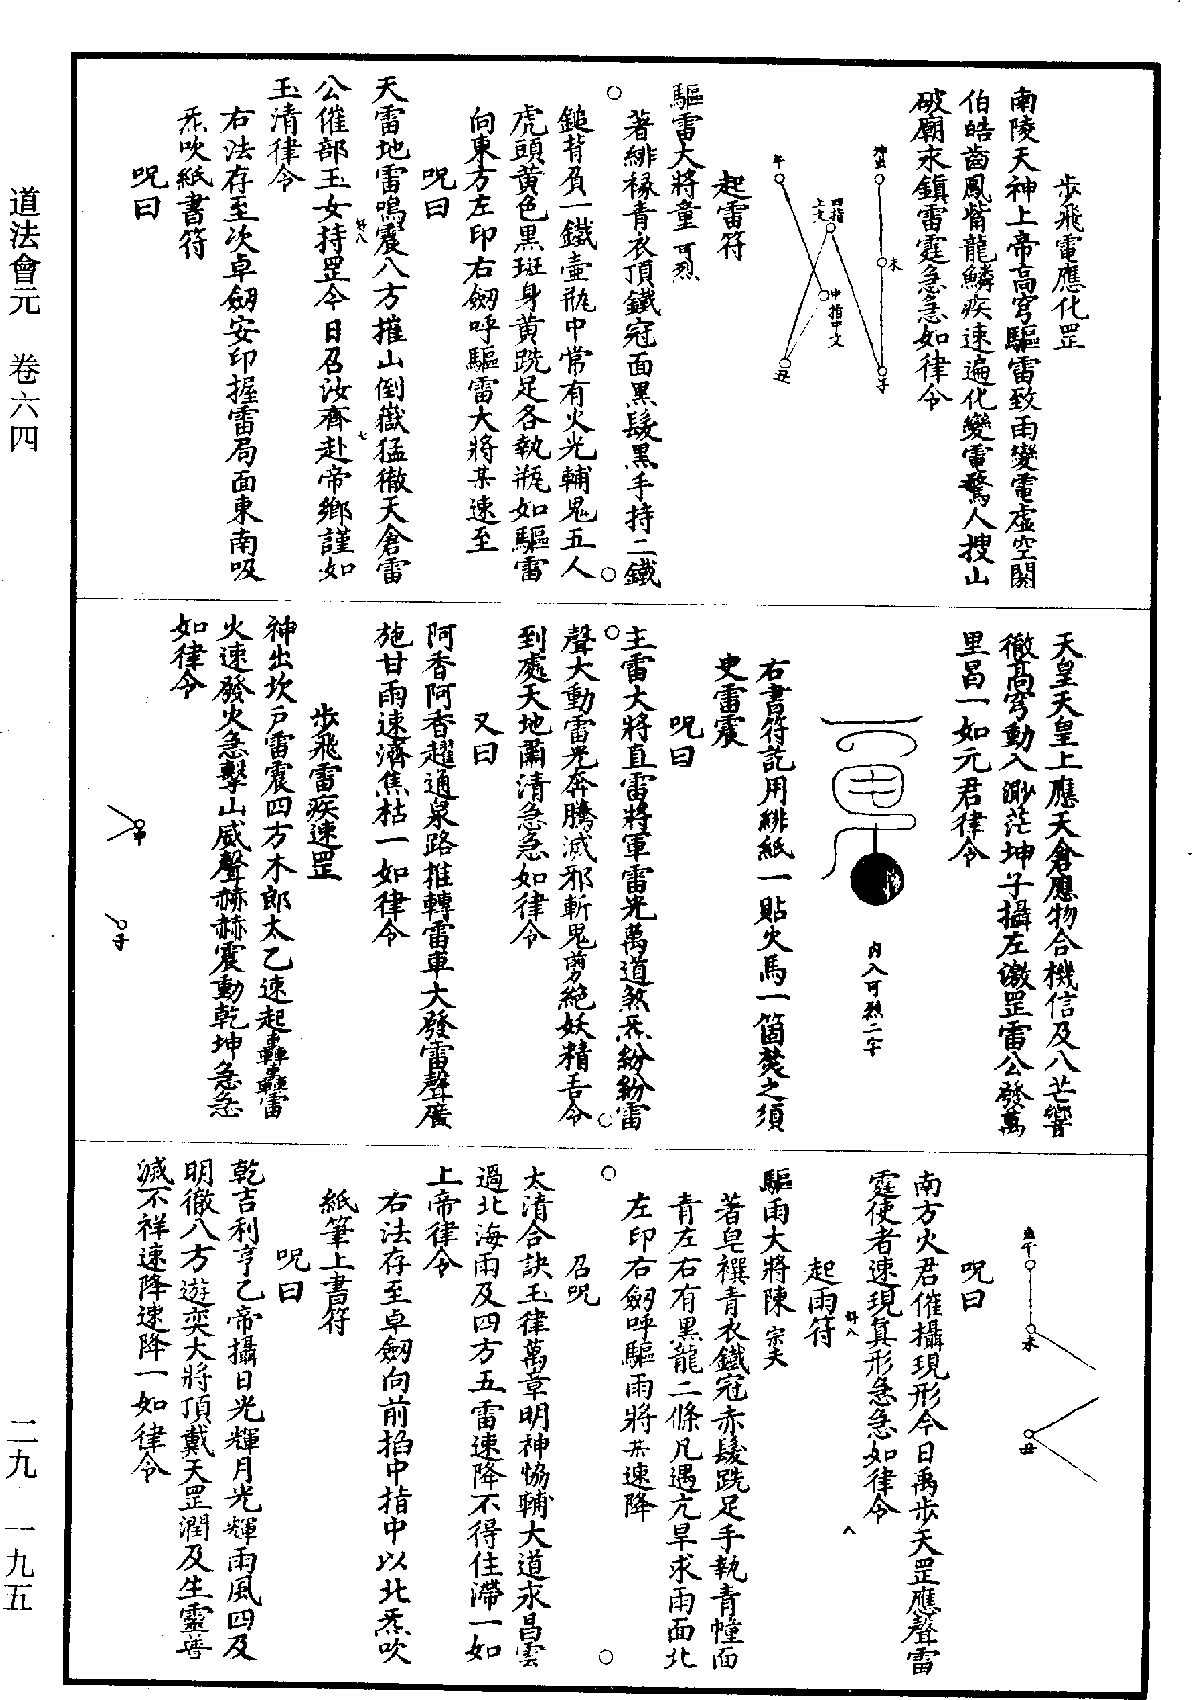 步飛電應化罡
南陵天神上帝高穹驅雷致雨變電虛空閼
伯皓齒鳳觜龍鱗疾速遍化變電驚人搜山
破廟永鎮雷霆急急如律令
未
子
四指上文
中指中文
午
丑
起雷符
驅雷大將童可烈
著緋椽青衣頂鐵冠面黑髮黑手持二鐵
鎚背負一鐵壺瓶中常有火光輔鬼五人
虎頭黃色黑斑身黃跣足各執瓶如驅雷
向東方左印右劒呼驅雷大將某速至
呪曰
天雷地雷鳴震八方摧山倒嶽猛徹天倉雷
公催部玉女持罡今日召汝齊赴帝鄉謹如
玉清律令
右法存至次卓劒安印握雷局面東南吸
炁吹紙書符
呪曰
天皇天皇上應天倉應物合機信及八芒響
徹高穹動入渺茫坤子攝左激罡雷公發萬
里昌一如元君律令
內入可烈二字
右書符訖用緋紙一貼火馬一箇焚之須
史雷震
呪曰
主雷大將直雷將軍雷光萬道煞炁紛紛雷
聲大動雷光奔騰滅邪斬鬼剪絕妖精吾令
到處天地肅清急急如律令
又曰
阿香阿香趯通泉路推轉雷車大發雷聲廣
施甘雨速濟焦枯一如律令
步飛雷疾速罡
神出坎戶雷震四方木郎太乙速起轟轟雷
火速發火急擊山威聲赫赫震動乾坤急急
如律令
中
子
未
丑
呪曰
南方火君催攝現形今日禹步天罡應聲雷
霆使者速現真形急急如律令
起雨符
驅雨大將陳宗夫
著皂襈青衣鐵冠赤髮跣足手執青幢面
青左右有黑龍二條凡遇亢旱求雨面北
左印右劒呼驅雨將某速降
召呪
太清合訣玉律萬章明神恊輔大道永昌雲
過北海雨及四方五雷速降不得住滯一如
上帝律令
右法存至卓劒向前掐中指中以北炁吹
紙筆上書符
呪曰
乾吉利亨乙帝攝日光輝月光輝雨風四及
明徹八方遊奕大將頂戴天罡潤及生靈普
滅不祥速降速降一如律令
道法會元 卷六四
二九 一九五